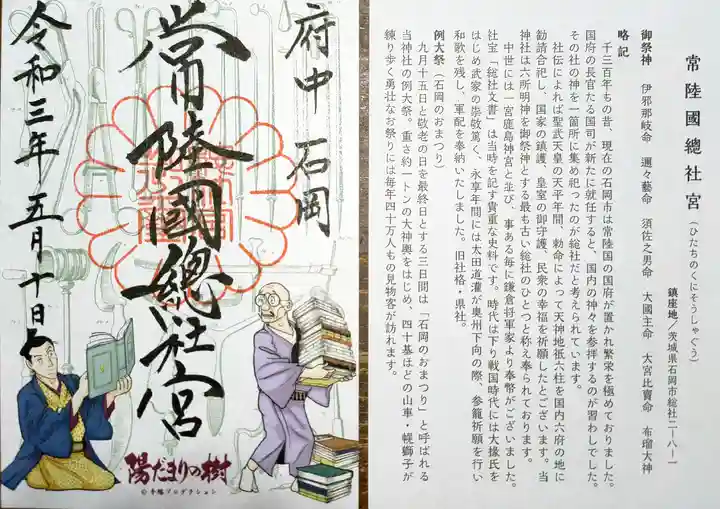 府中 石岡
常陸國總社宮
令和三年五月十日
陽だまりの樹
©手塚プロダクション
常陸國總社宮(ひたちのくにそうしゃぐう)
鎮座地/茨城県石岡市総社二-八-一
御祭神 伊邪那岐命 邇々藝命 須佐之男命 大國主命 大宮比賣命 布瑠大神
略記
千三百年もの昔、現在の石岡市は常陸国の国府が置かれ繁栄を極めておりました。
国府の長官たる国司が新たに就任すると、国内の神々を参拝するのが習わしでした。
その社の神を一箇所に集め祀ったのが総社だと考えられています。
社伝によれば聖武天皇の天平年間、勅命によって天神地祇六柱を国内六府の地に
勧請合祀し、国家の鎮護、皇室の御守護、民衆の幸福を祈願したとございます。当
神社は六所明神を御祭神とする最も古い総社のひとつと称え奉られております。
中世には一宮鹿島神宮と並び、事ある毎に鎌倉将軍家より奉幣がございました。
社宝「総社文書」は当時を記す貴重な史料です。時代は下り戦国時代には大掾氏を
はじめ武家の崇敬篤く、永享年間には太田道灌が奥州下向の際、参籠祈願を行い
和歌を残し、軍配を奉納いたしました。旧社格・県社。
例大祭(石岡のおまつり)
九月十五日と敬老の日を最終日とする三日間は「石岡のおまつり」と呼ばれる
当神社の例大祭。重さ約一トンの大神輿をはじめ、四十基ほどの山車・幌獅子が
練り歩く勇壮なお祭りには毎年四十万人もの見物客が訪れます。